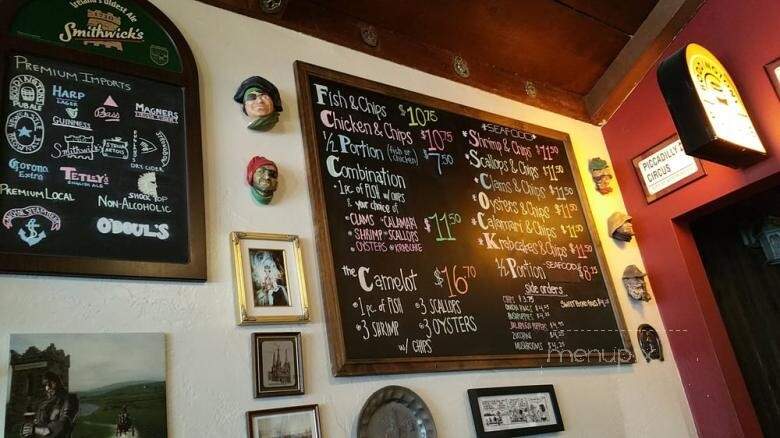 Ireland's Oldest Ale
Smithwick's
Premium Imports
HARP
LAGER
GUINNESS
Bass
MAGNERS
Smithwick's
STELLA
ARTOIS
CIDER
Corona
Extra
TETLEY'S
ENGLISH ALE
SHOCK TOP
Premium Local
Non-Alcoholic
O'DOUL'S
Fish & Chips $10.75
Chicken & Chips $10.75
1/2 Portion (fish or chicken) $7.50
Combination
1 pc of FISH w/ CHIPS
& your choice of
CLAMS CALAMARI
SHRIMP SCALLOPS
OYSTERS KRABCAKE
$11.50
the Camelot $16.70
1 pc of FISH 3 SCALLOPS
3 SHRIMP 3 OYSTERS
w/ CHIPS
SEAFOOD
Shrimp & Chips $11.50
Scallops & Chips $11.50
Clams & Chips $11.50
Oysters & Chips $11.50
Calamari & Chips $11.50
Krabcakes & Chips $11.50
1/2 Portion SEAFOOD $8.75
side orders
CHIPS $3.75
ONION RINGS $4.25
ZUCCHINI $4.25
MUSHROOMS $4.25
PICCADILLY
CIRCUS
menupix